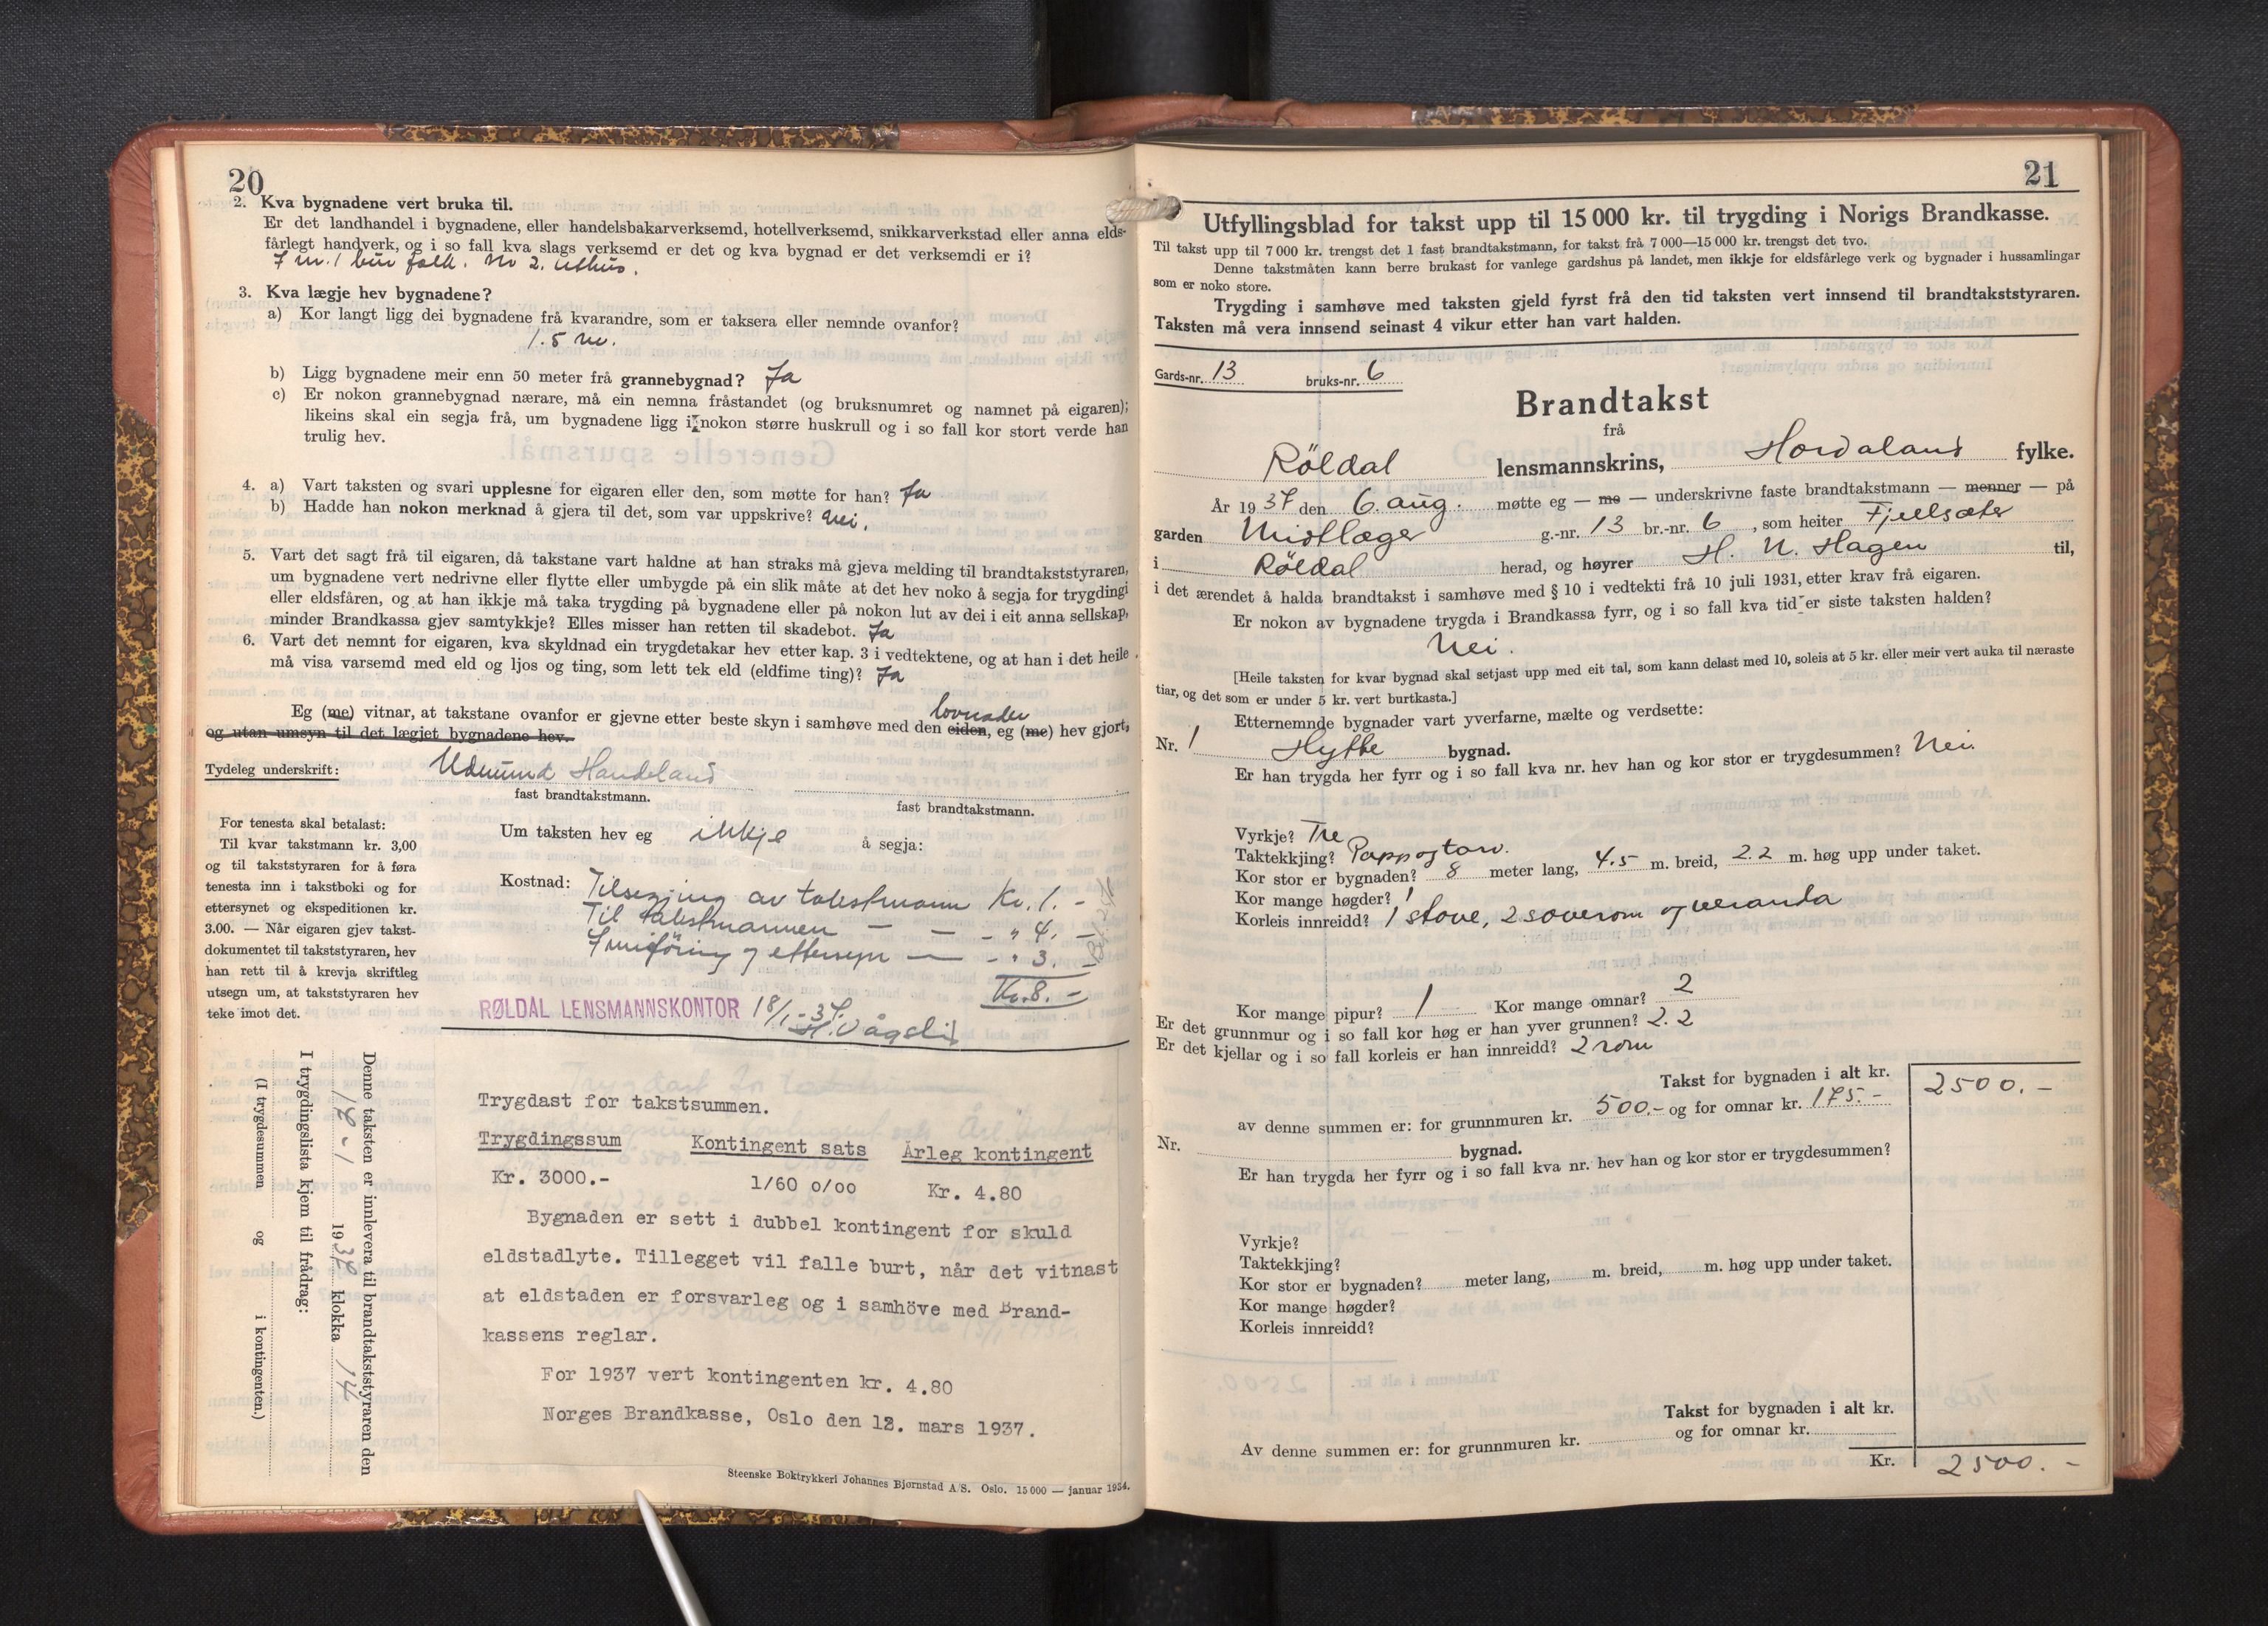 20
2. Kva bygnadene vert bruka til.
Er det landhandel i bygnadene, eller handelsbakarverksemd, hotellverksemd, snikkarverkstad eller anna elds-
fårlegt handverk, og i so fall kva slags verksemd er det og kva bygnad er det verksemdi er i?
I nr. 1 bur folk. Nr 2. uthus.
3. Kva lægje hev bygnadene?
a) Kor langt ligg dei bygnadene frå kvarandre, som er taksera eller nemnde ovanfor?
1.5 m.
b) Ligg bygnadene meir enn 50 meter frå grannebygnad? Ja
c) Er nokon grannebygnad nærare, må ein nemna fråstandet (og bruksnumret og namnet på eigaren);
likeins skal ein segja frå, um bygnadene ligg i nokon større huskrull og i so fall kor stort verde han
trulig hev.
4. a) Vart taksten og svari upplesne for eigaren eller den, som møtte for han? Ja
b) Hadde han nokon merknad å gjera til det, som var uppskrive? Nei.
5. Vart det sagt frå til eigaren, då takstane vart haldne at han straks må gjeva melding til brandtakststyraren,
um bygnadene vert nedrivne eller flytte eller umbygde på ein slik måte at det hev noko å segja for trygdingi
eller eldsfåren, og at han ikkje må taka trygding på bygnadene eller på nokon lut av dei i eit anna sellskap,
minder Brandkassa gjev samtykkje? Elles misser han retten til skadebot. Ja
6. Vart det nemnt for eigaren, kva skyldnad ein trygdetakar hev etter kap. 3 i vedtektene, og at han i det heile
må visa varsemd med eld og ljos og ting, som lett tek eld (eldfime ting)? Ja
lovnader
Eg (me) vitnar, at takstane ovanfor er gjevne etter beste skyn i samhøve med den eiden, eg (me) hev gjort,
og utan umsyn til det lægjet bygnadene hev.
Tydeleg underskrift: Admund Handeland
fast brandtakstmann.
fast brandtakstmann.
For tenesta skal betalast:
Til kvar takstmann kr. 3,00
og til takststyraren for å føra
tenesta inn i takstboki og for
ettersynet og ekspeditionen kr.
3.00. — Når eigaren gjev takst-
dokumentet til takststyraren, hev
han rett til å krevja skriftleg
utsegn um, at takststyraren hev
teke imot det.
Um taksten hev eg ikkje å segja:
Kostnad: Tilsegjing av takstmann Kr. 1. -
Til takstmannen — — - " 4. -
Innföring og ettersyn — - " 3. -
Kr. 8. -
RØLDAL LENSMANNSKONTOR 18/1-37.
H. Vågslid
Denne taksten er innlevera til brandtakststyraren den
18 - 1 1937 klokka 14
I trygdingslista kjem til frådrag:
(I trygdesummen og i kontingenten.)
Trygdast for takstsummen.
Trygdingssum Kontingent sats Årleg kontingent
Kr. 3000.- 1/60 o/oo Kr. 4.80
Bygnaden er sett i dubbel kontingent for skuld
eldstadlyte. Tillegget vil falle burt, når det vitnast
at eldstaden er forsvarleg og i samhöve med Brand-
kassens reglar.
For 1937 vert kontingenten kr. 4.80
Norges Brandkasse, Oslo den 12. mars 1937.
Steenske Boktrykkeri Johannes Bjørnstad A/S. Oslo. 15 000 — januar 1934.
21
Utfyllingsblad for takst upp til 15 000 kr. til trygding i Norigs Brandkasse.
Til takst upp til 7 000 kr. trengst det 1 fast brandtakstmann, for takst frå 7 000—15 000 kr. trengst det tvo.
Denne takstmåten kann berre brukast for vanlege gardshus på landet, men ikkje for eldsfårlege verk og bygnader i hussamlingar
som er noko store.
Trygding i samhøve med taksten gjeld fyrst frå den tid taksten vert innsend til brandtakststyraren.
Taksten må vera innsend seinast 4 vikur etter han vart halden.
Gards-nr. 13 bruks-nr. 6
Brandtakst
frå
Röldal lensmannskrins, Hordaland fylke.
År 1937 den 6. aug. møtte eg — me — underskrivne faste brandtakstmann — menner — på
garden Midtlæger g.-nr. 13 br.-nr. 6, som heiter Fjellsæter
i Röldal herad, og høyrer H. N. Hagen til,
i det ærendet å halda brandtakst i samhøve med § 10 i vedtekti frå 10 juli 1931, etter krav frå eigaren.
Er nokon av bygnadene trygda i Brandkassa fyrr, og i so fall kva tid er siste taksten halden?
Nei.
[Heile taksten for kvar bygnad skal setjast upp med eit tal, som kann delast med 10, soleis at 5 kr. eller meir vert auka til næraste
tiar, og det som er under 5 kr. vert burtkasta.]
Etternemnde bygnader vart yverfarne, mælte og verdsette:
Nr. 1 Hytte bygnad.
Er han trygda her fyrr og i so fall kva nr. hev han og kor stor er trygdesummen? Nei.
Vyrkje? Tre
Taktekkjing? Papp og torv.
Kor stor er bygnaden? 8 meter lang, 4.5 m. breid, 2.2 m. høg upp under taket.
Kor mange høgder? 1
Korleis innreidd? 1 stove, 2 soverom og veranda
Kor mange pipur? 1 Kor mange omnar? 2
Er det grunnmur og i so fall kor høg er han yver grunnen? 2.2
Er det kjellar og i so fall korleis er han innreidd? 2 rom
Takst for bygnaden i alt kr. 2500.-
av denne summen er: for grunnmuren kr. 500.- og for omnar kr. 175.-
Nr. bygnad.
Er han trygda her fyrr og i so fall kva nr. hev han og kor stor er trygdesummen?
Vyrkje?
Taktekkjing?
Kor stor er bygnaden? meter lang, m. breid, m. høg upp under taket.
Kor mange høgder?
Korleis innreidd?
Takst for bygnaden i alt kr.
Av denne summen er: for grunnmuren kr. og for omnar kr.
Kr. 2500.-